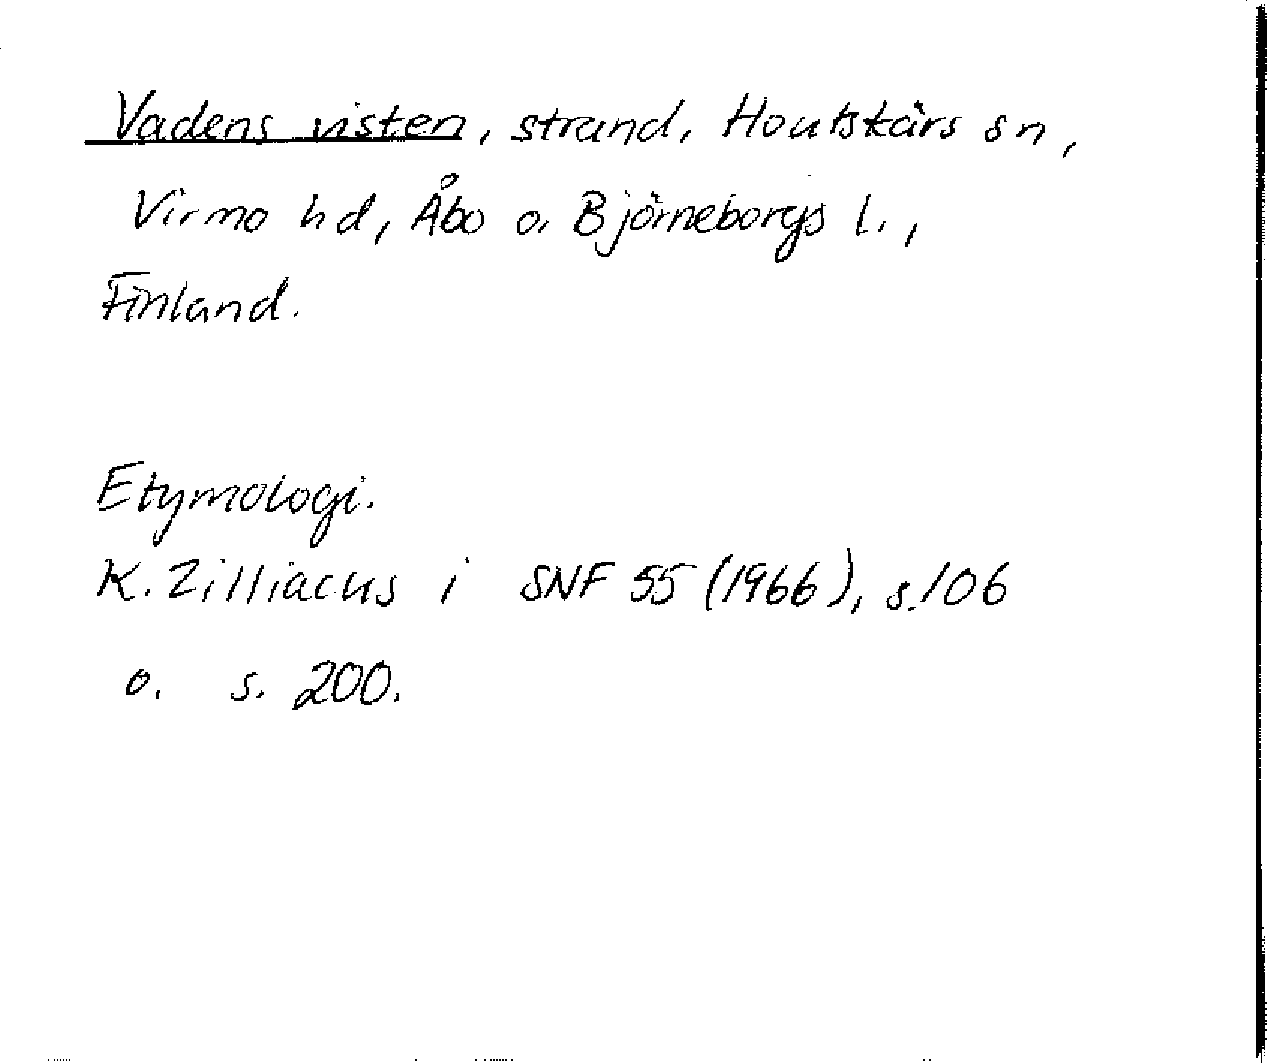 Vadens visten, strand, Houtskärs sn,
Virmo hd, Åbo o. Björneborgs l.,
Finland.
Etymologi.
K. Zilliacus i SNF 55 (1966), s. 106
o. s. 200.